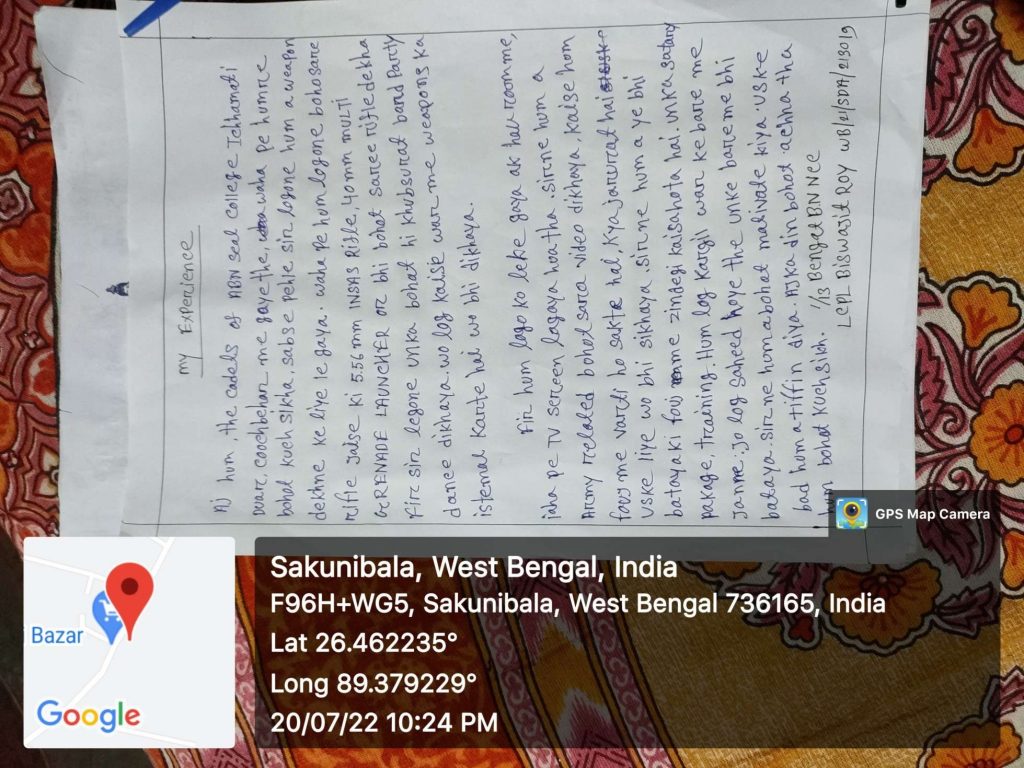 my Experience
A) hum, the cadets of ABN seal college Ichhamati
pwar, coochbehar me gaye the, waha pe humne
bohot kuch sikha, sabse pehle sir logone hum a weapon
dekhne ke liye le gaya. waha pe hum logone bohosare
riffle jaise ki 5.56 mm INSAS Rifle, 40mm MULTI
GRENADE LAUNCHER or bhi bohot saree rifle dekha
Fir sir logone unka bohot hi khubsurat band Party
dance dikhaya. wo log kaise war me weapons ka
istemal karte hai wo bhi dikhaya.
Fir hum logo ko leke gaya ak hawroom me,
iaha pe TV screen lagaya hoatha. sirne hum a
Army related bohot sara video dikhaya, kaise hom
fouj me vardi ho sakte hai, kya jarurat hai
uske liye wo bhi sikhaya. sirne hum a ye bhi
batayaki fouj me zindegi kaisahota hai. unka satary
pakage, training. Hum log Kargil war ke bare me
Janme. Jo log saheed hoye the unke bareme bhi
bataya. sir ne humabohat mativate kiya. uske
bad hum a tiffin diya Ajka din bohot achha tha
hum bohot kuch sikh. /13 Bengal BN NCC
LCPL BISWAJIT ROY WB/21/SDA/213019
GPS Map Camera
Bazar
Google
Sakunibala, West Bengal, India
F96H+WG5, Sakunibala, West Bengal 736165, India
Lat 26.462235°
Long 89.379229°
20/07/22 10:24 PM